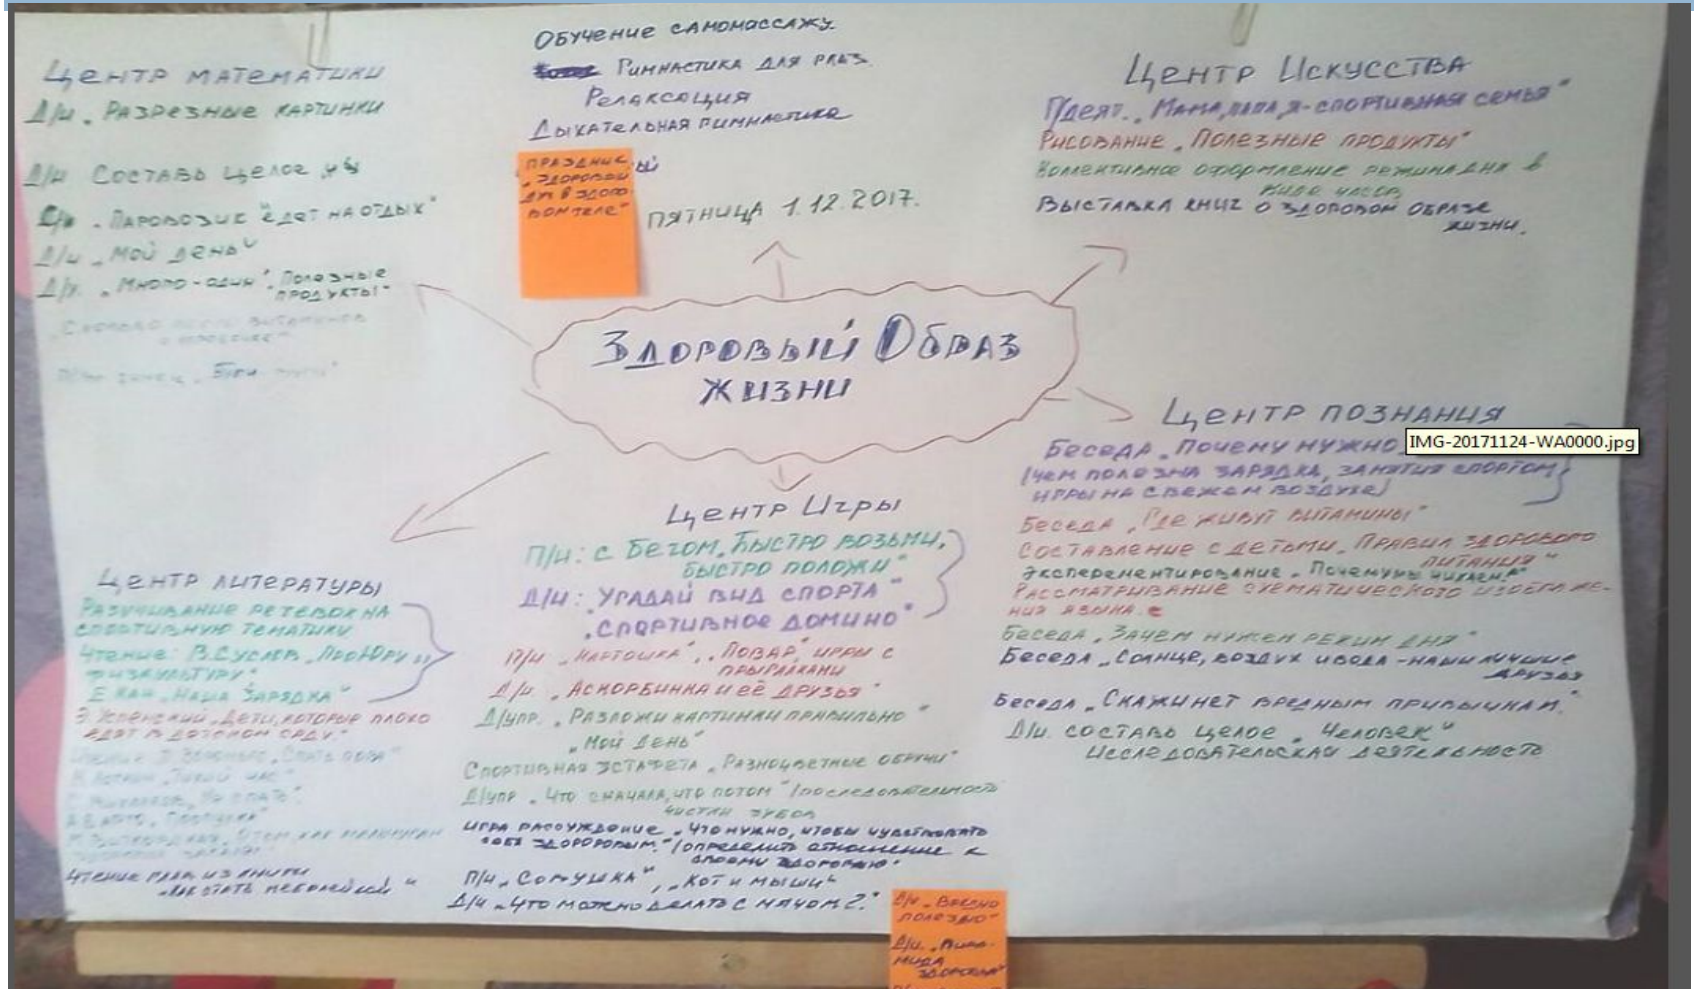 Обучение самомассажу.
Гимнастика для глаз.
Релаксация
Дыхательная гимнастика
Праздник
„Здоровый
дух в здоро-
вом теле"
пятница 1.12.2017.
Здоровый Образ
жизни
Центр математики
Д/и „Разрезные картинки
Д/и Составь целое
„Паровозик едет на отдых"
Д/и „Мой день"
„Много-один" „Полезные
продукты"
витаминов
Центр Искусства
П/деят. „Мама, папа, я-спортивная семья"
Рисование „Полезные продукты"
Коллективное оформление режима дня в
виде часов
Выставка книг о здоровом образе
жизни.
Центр познания
Беседа „Почему нужно
(чем полезна зарядка, занятия спортом,
игры на свежем воздухе)
Беседа „Где живут витамины"
Составление с детьми „Правил здорового
питания"
Эксперементирование „Почему мы чихаем?"
Рассматривание схематического изображе-
ния языка.
Беседа „Зачем нужен режим дня"
Беседа „Солнце, воздух и вода-наши лучшие
друзья
Беседа „Скажи нет вредным привычкам."
Д/и. составь целое „Человек"
исследовательская деятельность
IMG-20171124-WA0000.jpg
Центр Игры
П/и: с бегом „Быстро возьми,
быстро положи"
Д/и: „Угадай вид спорта"
„Спортивное домино"
П/и „Картошка", „Повар", игры с
прыгалками
Д/и. „Аскорбинка и её друзья"
Д/упр. „Разложи картинки правильно"
„Мой день"
Спортивная эстафета „Разноцветные обручи"
Д/упр „Что сначала, что потом" (последовательность
чистки зубов
Игра рассуждение „Что нужно, чтобы чувствовать
себя здоровым." (определить отношение к
своему здоровью"
П/и „Совушка", „Кот и мыши"
Д/и „Что можно делать с мячом?."
Д/и „Вредно
полезно"
Д/и. „Пира-
мида
здоровья"
Центр литературы
Разучивание речевок на
спортивную тематику
Чтение: В. Суслов „Про Юру и
физкультуру"
Е. Кан „Наша зарядка"
Э. Успенский „Дети, которые плохо
едят в детском саду."
„Спать пора"
„Тихий час"
С. Михалков „Не спать".
А. Барто
Чтение глав из книги
„Как стать неболейкой"